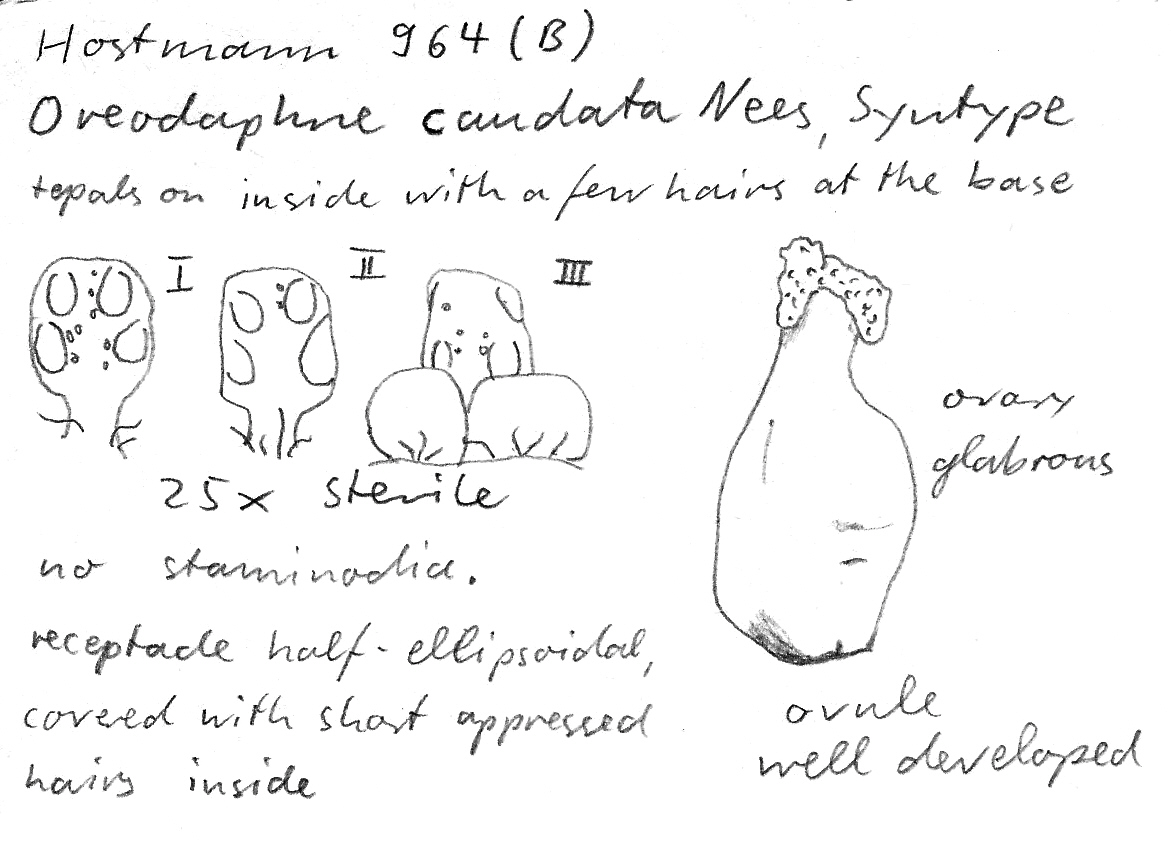 Hostmann 964 (B)
Oreodaphne caudata Nees, Syntype
tepals on inside with a few hairs at the base
I II III
25x sterile
ovary
glabrous
no staminodia.
receptacle half-ellipsoidal,
covered with short appressed
hairs inside
ovule
well developed